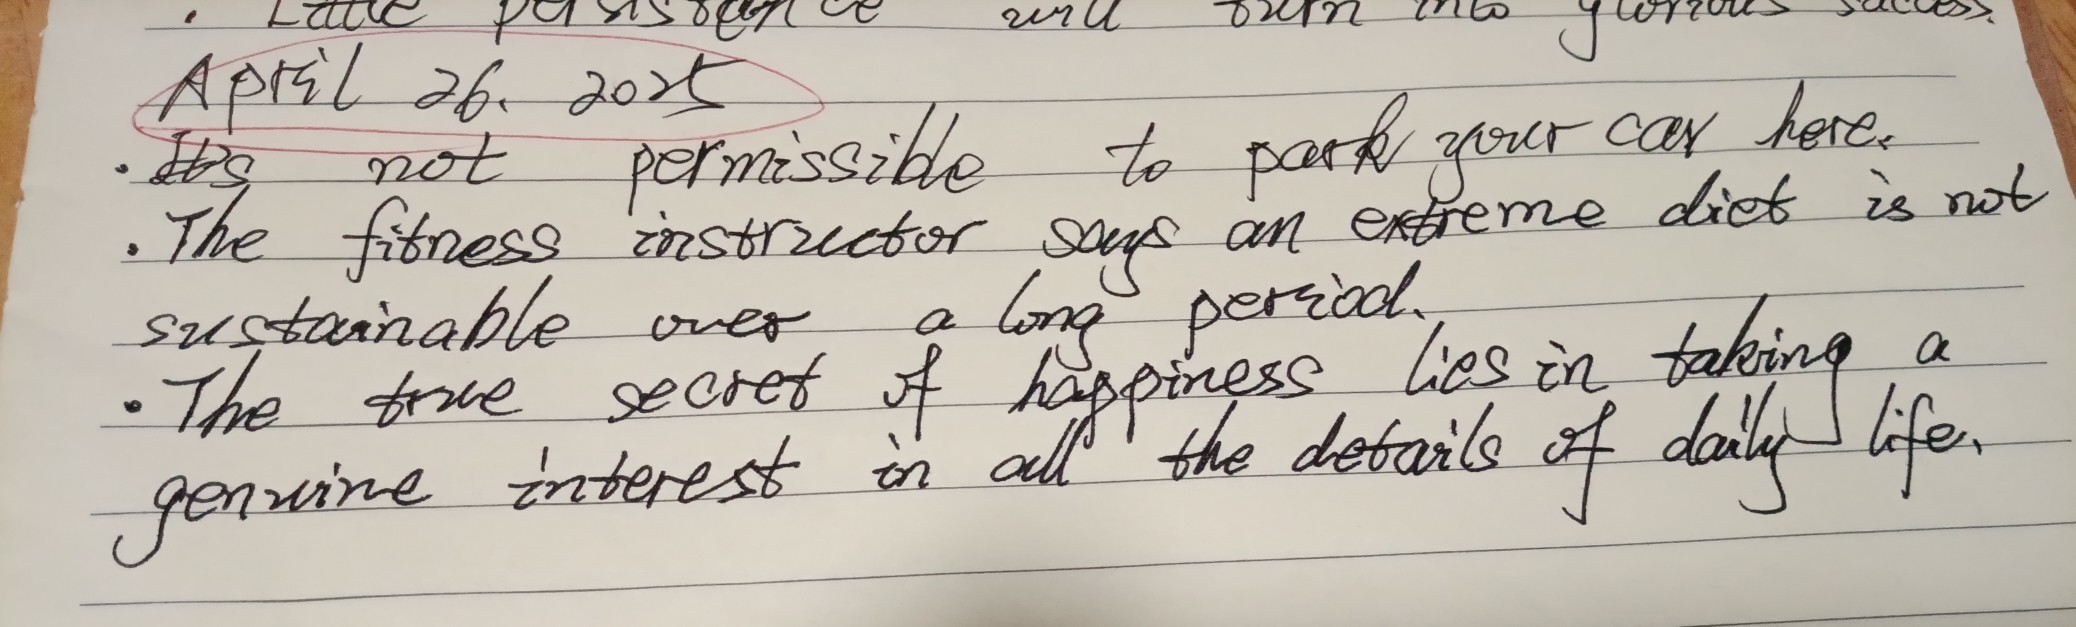 • Little persistance will turn into glorious success.
April 26. 2025
• It's not permissible to park your car here.
• The fitness instructor says an extreme diet is not
sustainable over a long period.
• The true secret of happiness lies in taking a
genuine interest in all the details of daily life.